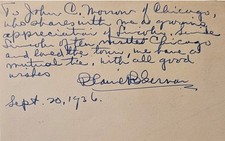 To John C. Morrow of Chicago,
who shares with me a growing
appreciation of Lincoln. Since
Lincoln often visited Chicago
and loved the town, we have a
mutual tie, with all good
wishes
Sept. 20, 1926.